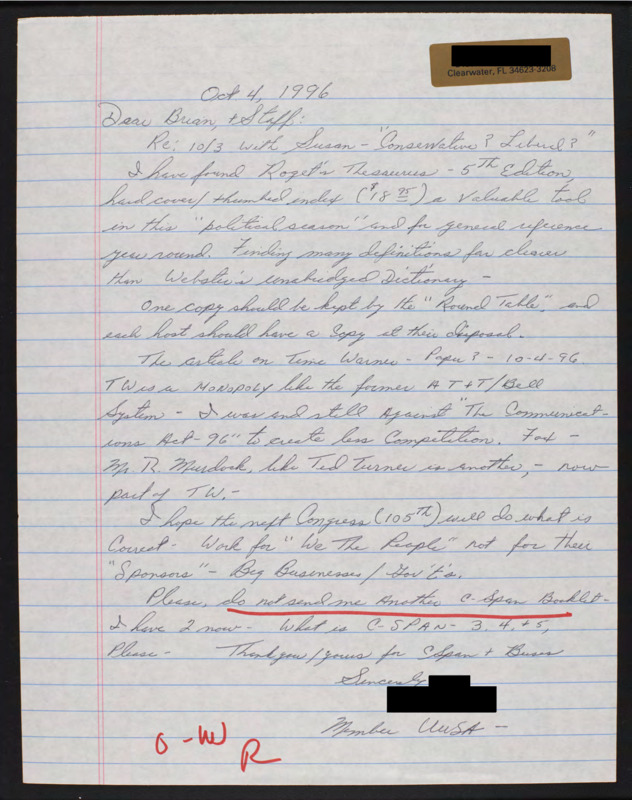 Clearwater, FL 34623-3208
Oct 4, 1996
Dear Brian, + Staff:
Re: 10/3 with Susan - "Conservative? Liberal?"
I have found Roget's Thesaurus - 5th Edition,
hard cover/thumbed index ($18 95) a valuable tool
in this "political season" and for general reference
year round. Finding many definitions far clearer
than Webster's unabridged Dictionary -
One copy should be kept by the "Round Table", and
each host should have a copy at their disposal.
The article on Time Warner - Paper? - 10-4-96
TW is a MONOPOLY like the former AT+T/Bell
System - I was and still against "The Communicat-
ions Act - 96" to create less Competition. Fox -
Mr R. Murdock, like Ted Turner is another, - now
part of TW. -
I hope the next Congress (105th) will do what is
Correct - Work for "We The People" not for their
"Sponsors" - Big Businesses/Gov't's.
Please, do not send me another C-Span Booklet -
I have 2 now - What is C-SPAN - 3, 4, + 5,
Please - Thank you/yours for CSpan + Buses
Sincerely
Member UWSA -
O-W
R